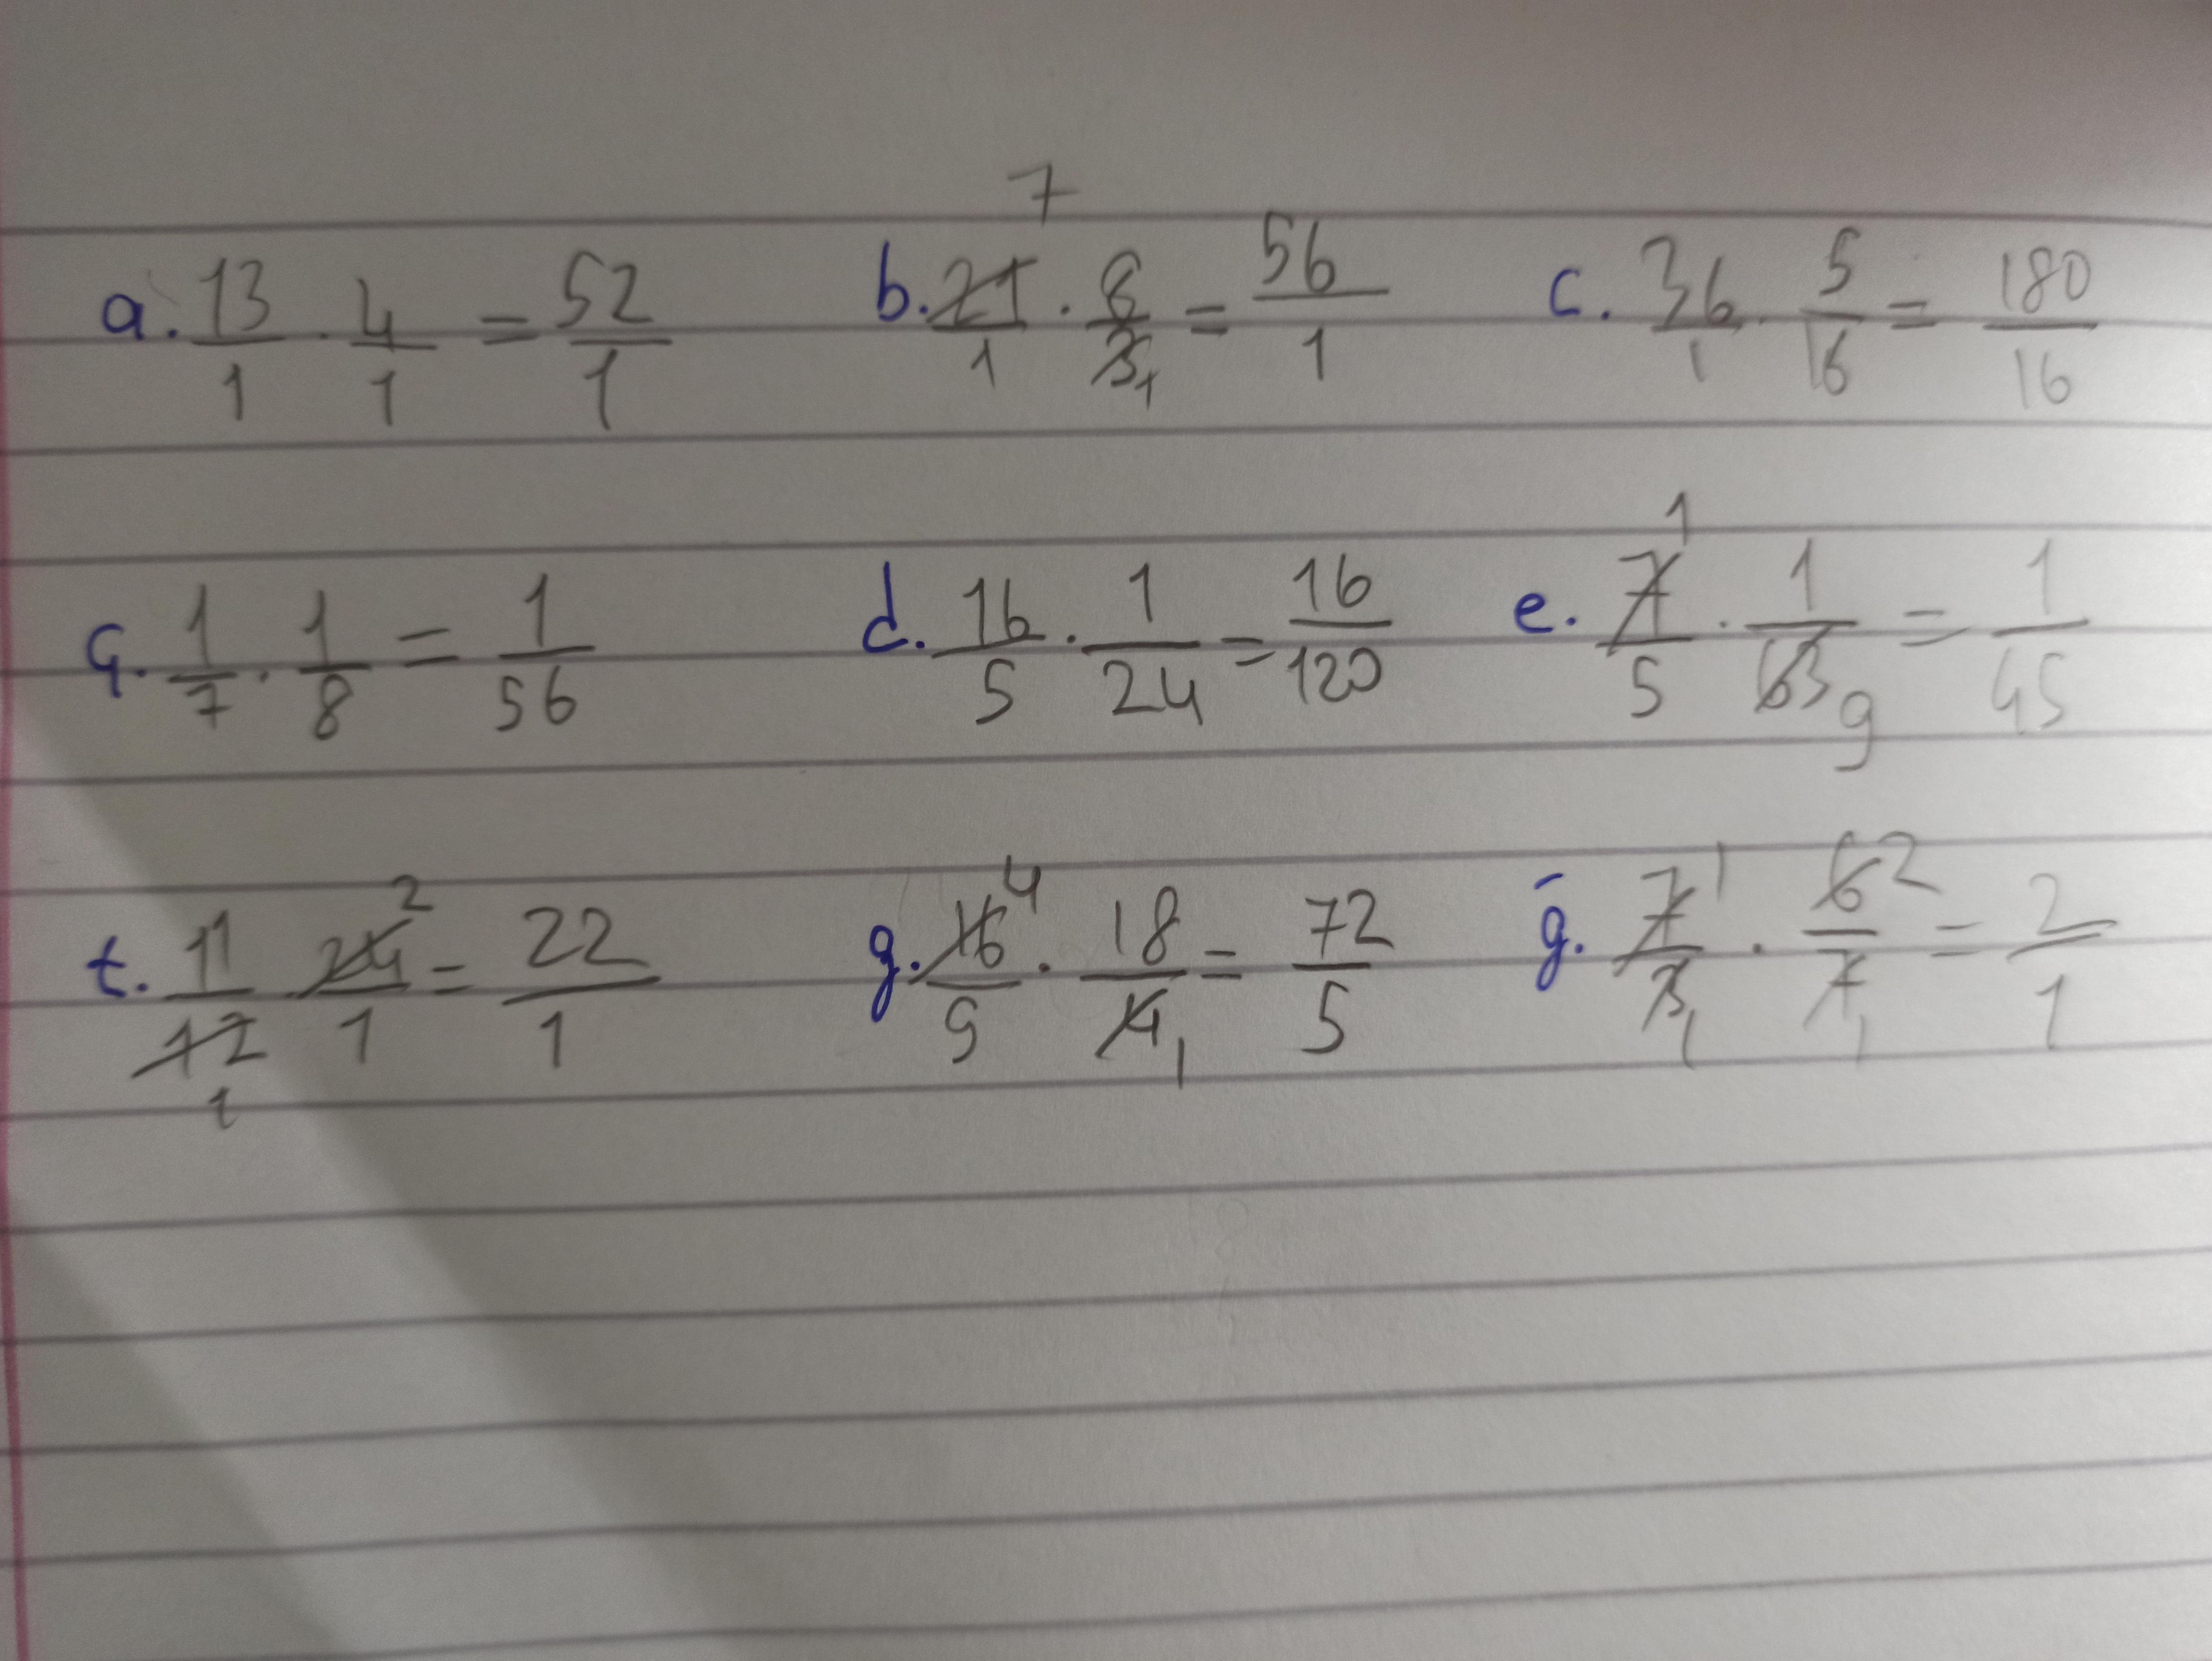 a. 13/1 · 4/1 = 52/1 b. 21/1 7 · 8/3 1 = 56/1 c. 36/1 · 5/16 = 180/16
ç. 1/7 · 1/8 = 1/56 d. 16/5 · 1/24 = 16/120 e. 7/5 1 · 1/63 9 = 1/45
f. 11/12 1 · 24/1 2 = 22/1 g. 16/5 4 · 18/4 1 = 72/5 ğ. 7/3 1 1 · 6/7 2 1 = 2/1